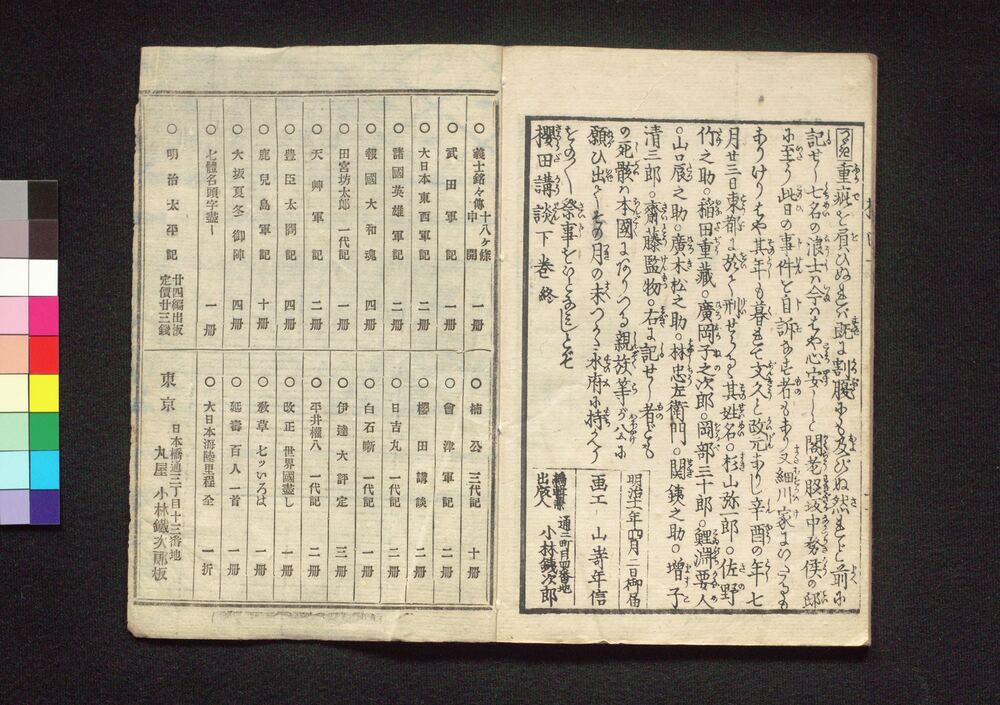 重疵を負ひぬれバ既に割腹にも及びぬ然れども前に
記せし七名の浪士ハ今ハはや心安しと閣老脇坂中務侯の邸
に至り此日の事件を自訴なす者もあり又細川家にいたるも
ありけりはや其年も暮れて文久と改元ありし辛酉の年七
月廿三日東都に於て刑せらる其姓名。杉山弥一郎。佐野
竹之助。稲田重藏。廣岡子之次郎。岡部三十郎。鯉淵要人
。山口辰之助。廣木松之助。林忠左衛門。関鉄之助。増子
清三郎。齋藤監物。右に記せし者ども
の死骸ハ本國にありつる親族等が公に
願ひ出てその月の末つかた水府に持かへり
をの〳〵祭事をいとなみしとぞ
櫻田講談下之巻 終
明治十一年四月二日御届
画工 山嵜年信
出版人 通三町目四番地 小林鉄次郎
○義士銘々傳 十八ヶ條申開 一冊
○武田軍記 一冊
○大日本東西軍記 二冊
○諸國英雄軍記 二冊
○報國大和魂 四冊
○田宮坊太郎一代記 一冊
○天艸軍記 二冊
○豊臣太閤記 四冊
○鹿兒島軍記 十冊
○大坂夏冬御陣 四冊
○七體名頭字盡し 一冊
○明治太平記 廿四編出版 定價廿三錢
○楠公三代記 十冊
○會津軍記 二冊
○櫻田講談 二冊
○日吉丸一代記 二冊
○白石噺一代記 一冊
○伊達大評定 三冊
○平井權八一代記 二冊
○改正世界國盡し 一冊
○教草七ッいろは 一冊
○延壽百人一首 一冊
○大日本海陸里程全 一折
東京 日本橋通三丁目十三番地
丸屋 小林鐵次郎板